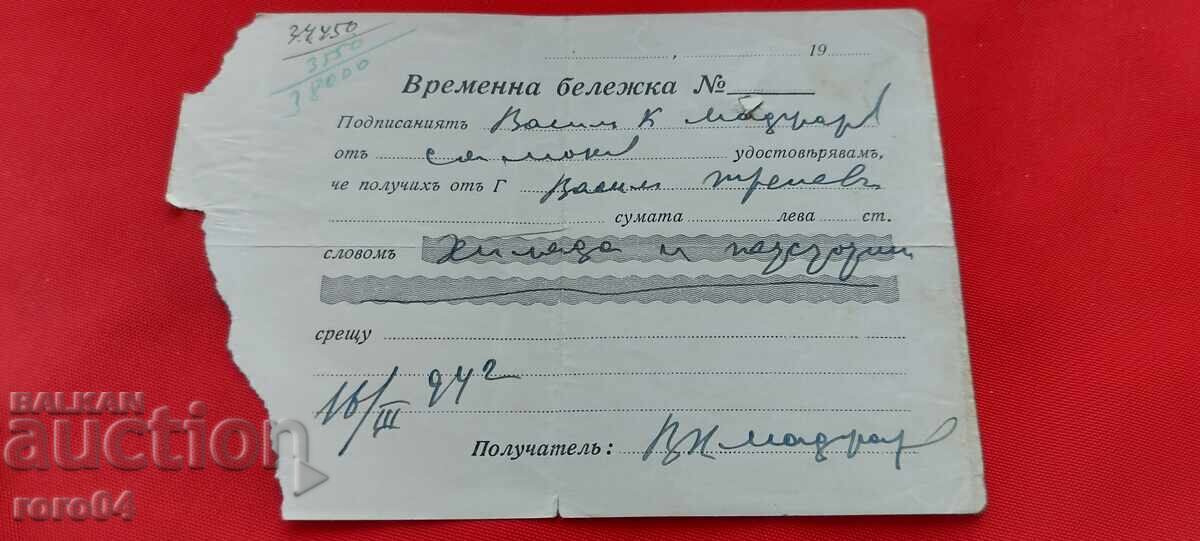 34450
3550
38000
, 19
Временна бележка №
Подписаниятъ Васил К Маджаров
отъ удостовѣрявамъ,
че получихъ отъ Г Васил
сумата лева ст.
словомъ Хиляда и петстотин
срещу
16/III 942
Получатель: ВКМаджаров
BALKAN
auction
roro04